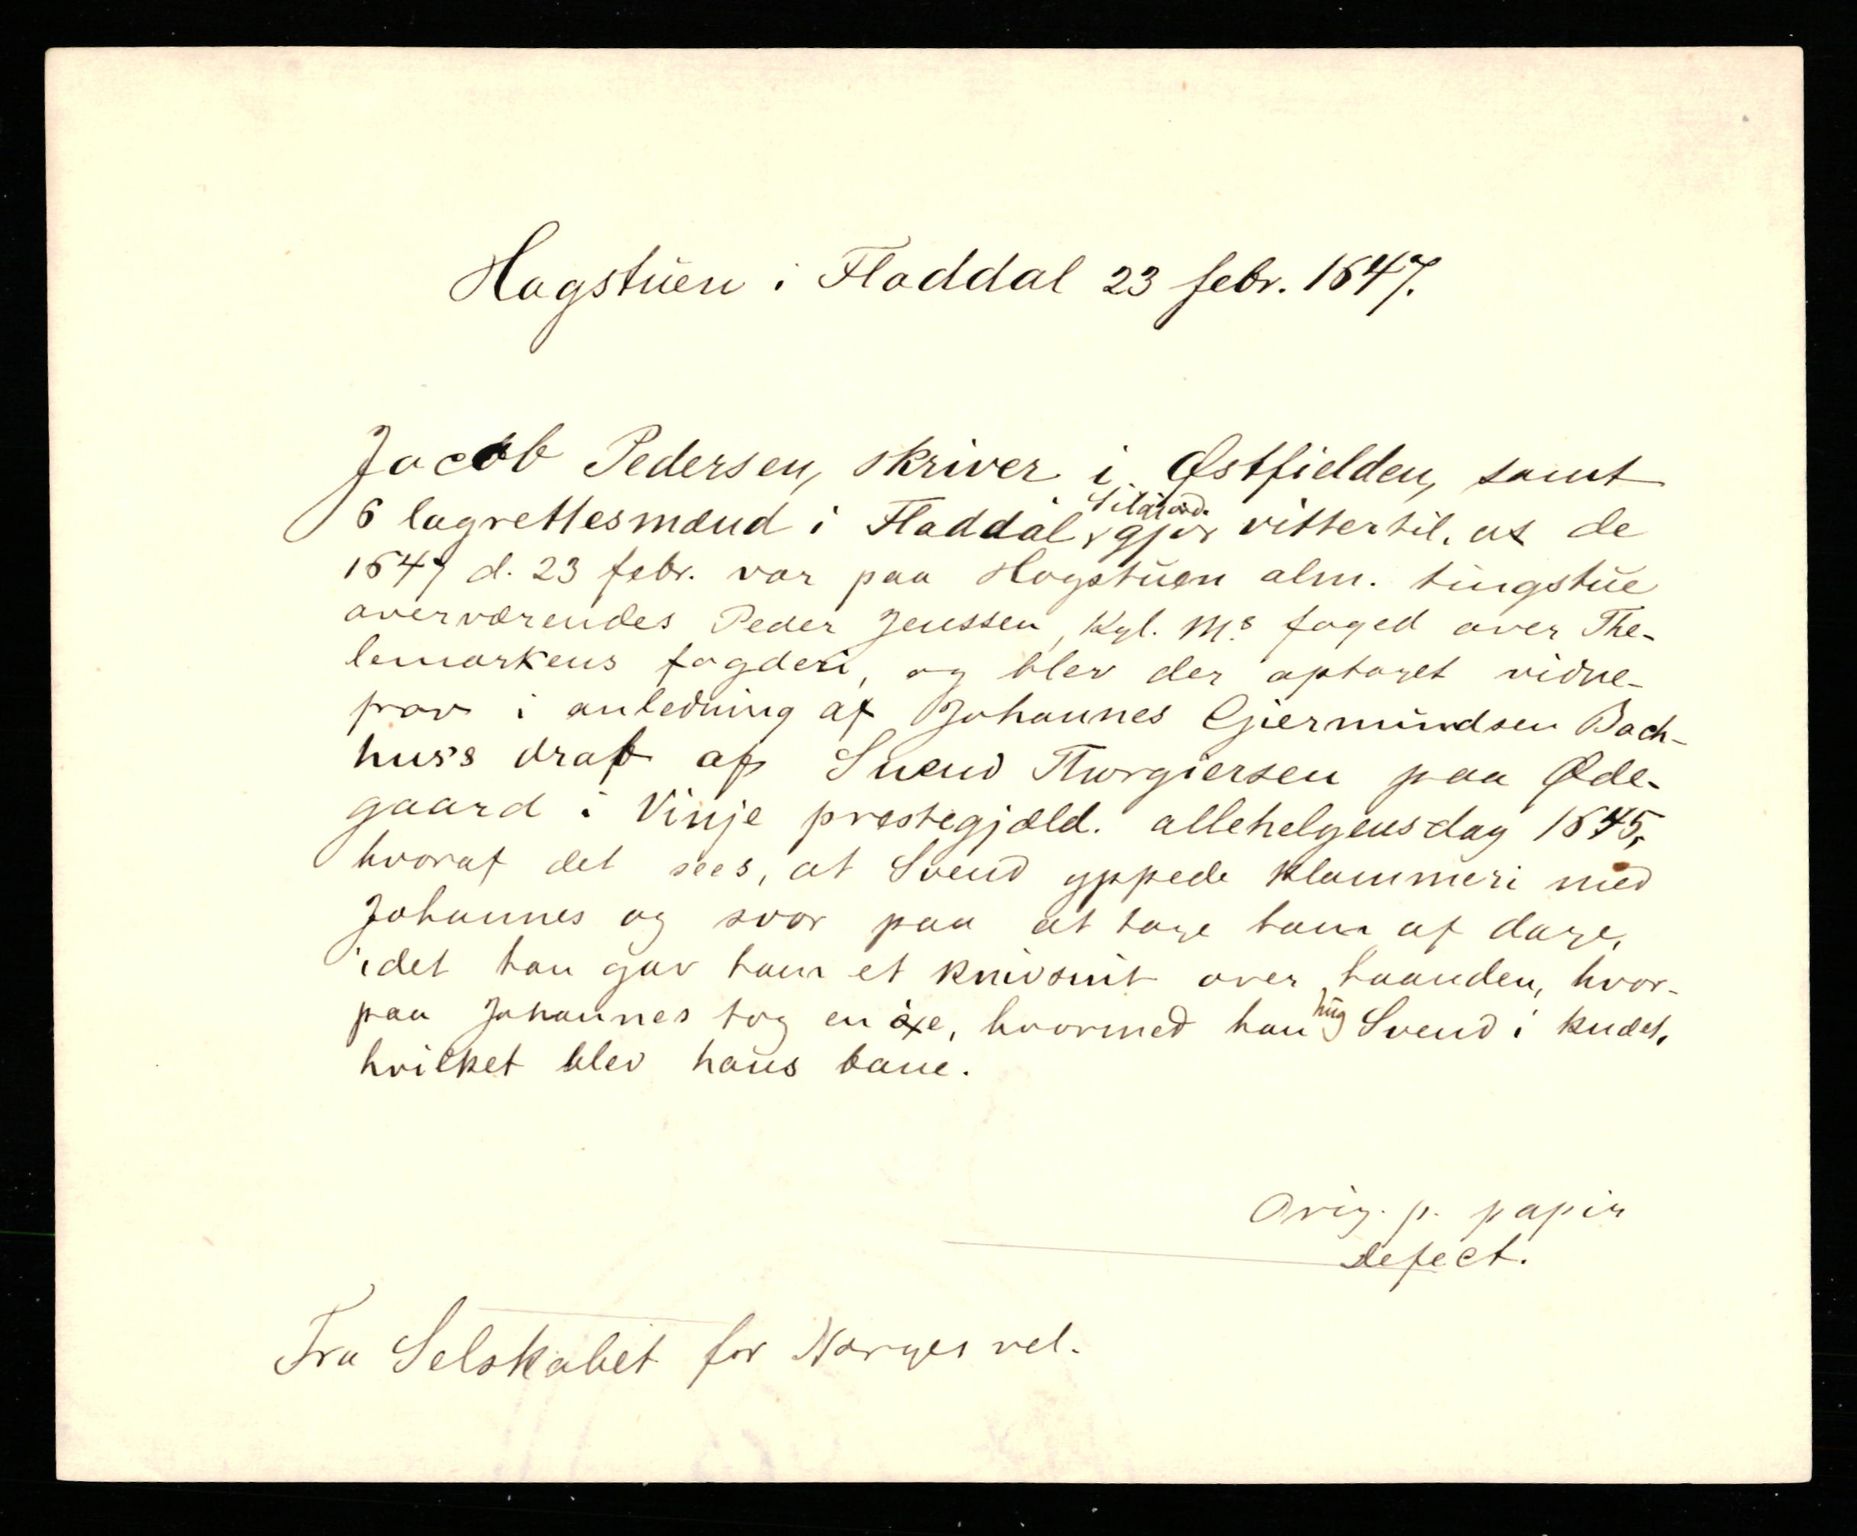 Hagstuen i Fladdal 23 febr. 1647.
Jacob Pedersen, skriver i Østfielden, samt
6 lagrettesmænd i Fladdal, gjør vittertil. at de
1647 d. 23 febr. var paa Hogstuen alm. tingstue
overværendes Peder Jenssen, Kgl. M.s foged over The-
lemarkens fogderi, og blev der optaget vidne-
prov i anledning af Johannes Gjermundsen Bach-
huss drab af Suend Thorgiersen paa Øde-
gaard i Vinje prestegjæld. allehelgensdag 1645,
hvoraf det sees, at Svend yppede klammeri med
Johannes og svor paa at tage ham af dage,
idet han gav ham et knivsnit over haanden, hvor-
paa Johannes tog en øxe, hvormed han hug Svend i knæet,
hvilket blev hans bane.
Orig. p. papir
defect.
Fra Selskabet for Norges vel.